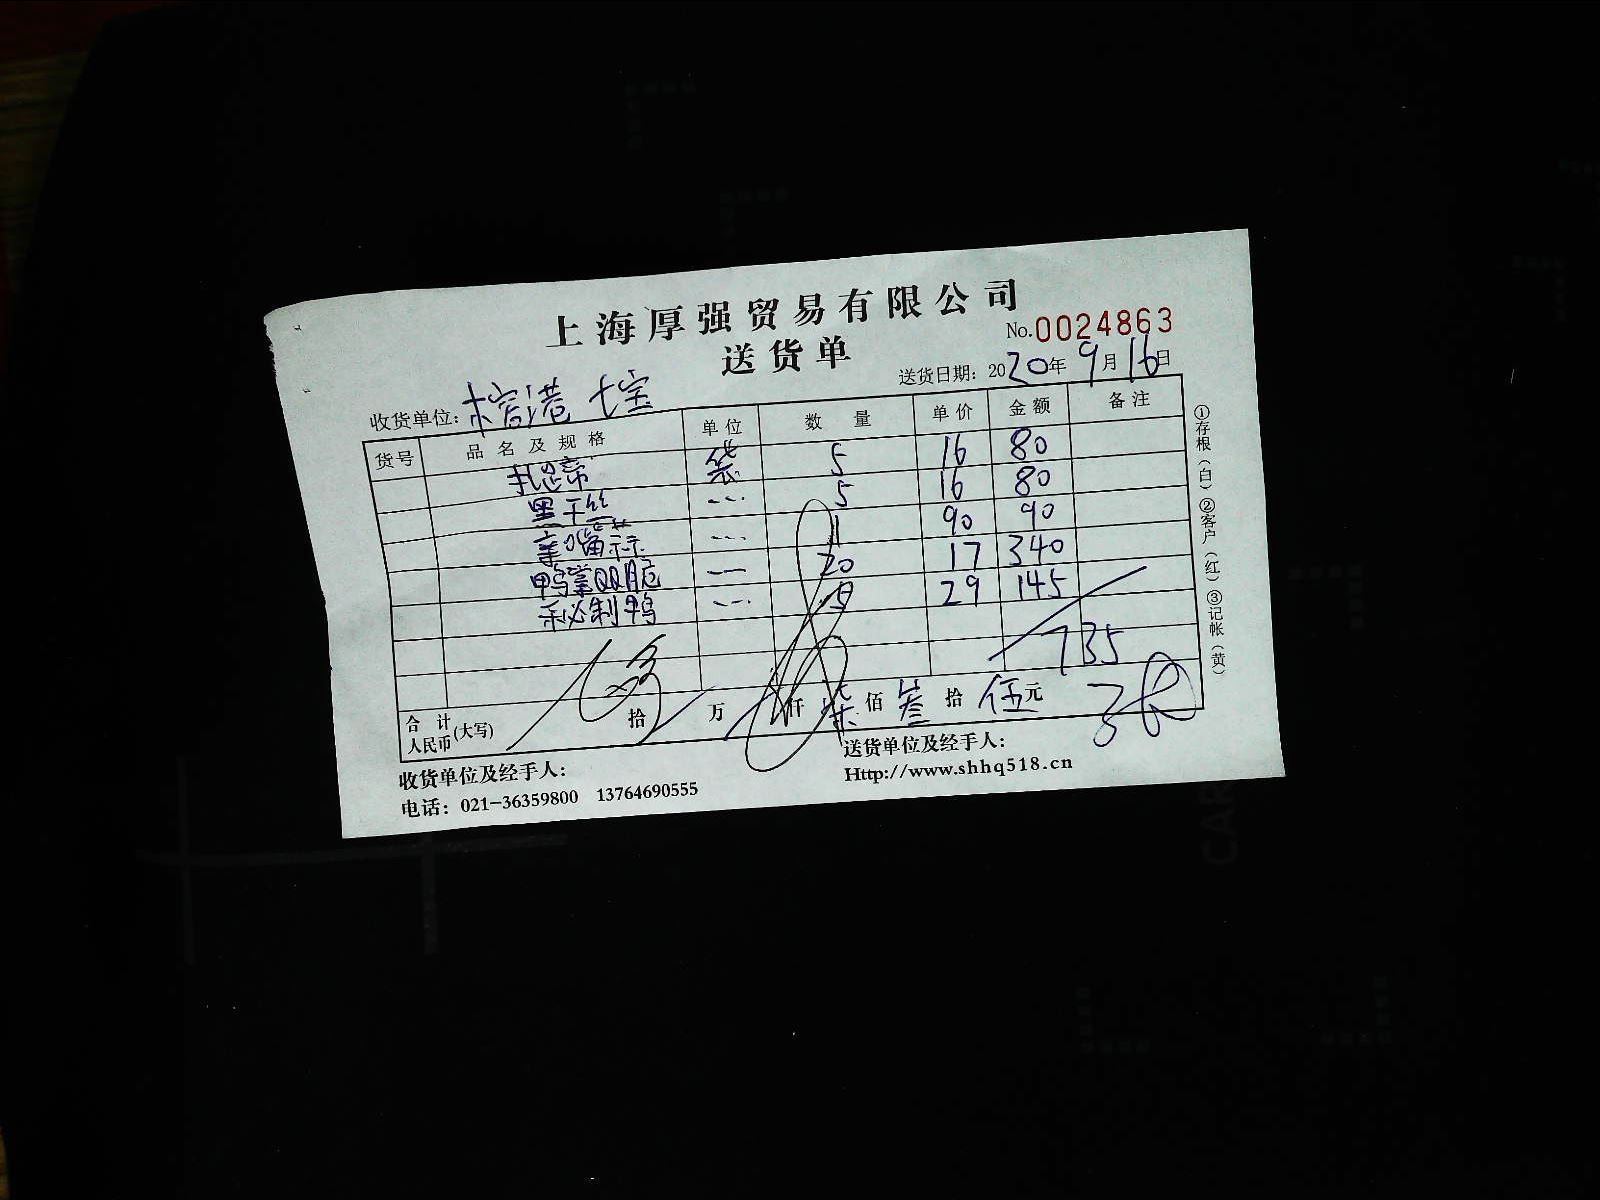 上海厚强贸易有限公司
No.0024863
送货单
送货日期：2020年9月16日
收货单位： 七宝
货号 品名及规格 单位 数量 单价 金额 备注
袋 5 16 80
黑干丝 5 16 80
1 90 90
鸭掌QQ脆 20 17 340
秘制鸭 5 29 145
735
合计人民币(大写) 拾 万 仟 柒 佰 叁 拾 伍 元
收货单位及经手人： 送货单位及经手人：
电话：021-36359800 13764690555 Http://www.shhq518.cn
①存根（白）②客户（红）③记帐（黄）